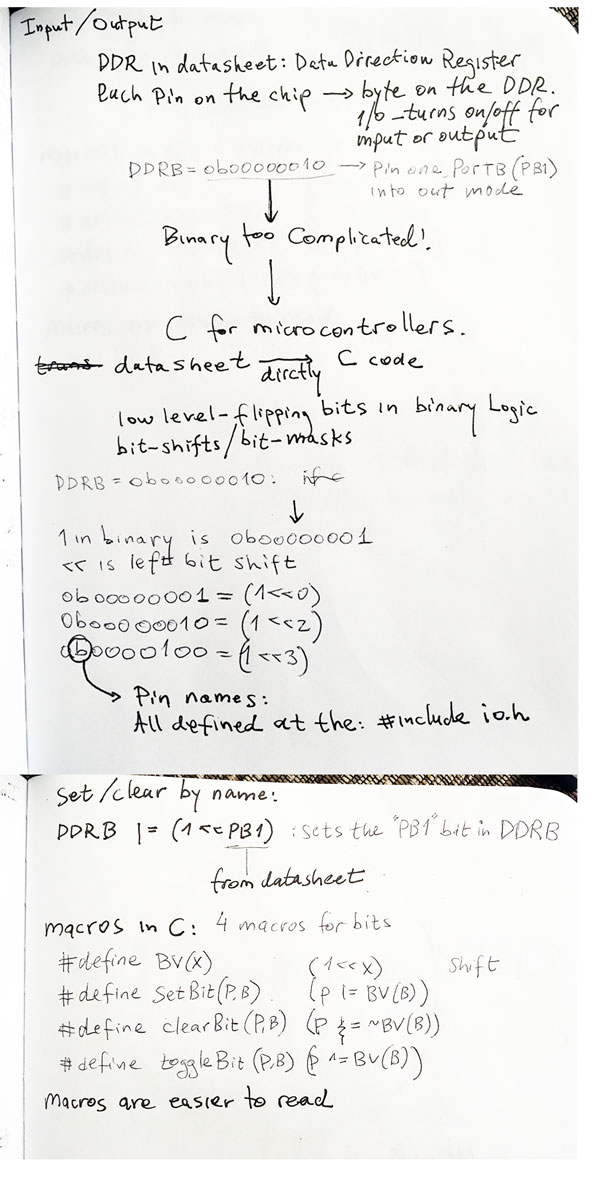 Input/Output
DDR in datasheet: Data Direction Register
Each Pin on the chip → byte on the DDR.
1/0 - turns on/off for
input or output
DDRB = 0b00000010 → Pin one PortB (PB1)
into out mode
Binary too Complicated!
C for microcontrollers.
trans datasheet → C code
dirctly
low level-flipping bits in binary Logic
bit-shifts/bit-masks
DDRB = 0b00000010:
1 in binary is 0b00000001
<< is left bit shift
0b00000001 = (1<<0)
0b00000010 = (1<<2)
0b0000100 = (1<<3)
Pin names:
All defined at the: #include io.h
Set/clear by name:
DDRB |= (1<<PB1) : sets the "PB1" bit in DDRB
from datasheet
macros in C: 4 macros for bits
#define BV(X) (1<<X) Shift
#define SetBit(P,B) (P |= BV(B))
#define clearBit(P,B) (P &= ~BV(B))
#define toggleBit(P,B) (P ^= BV(B))
Macros are easier to read